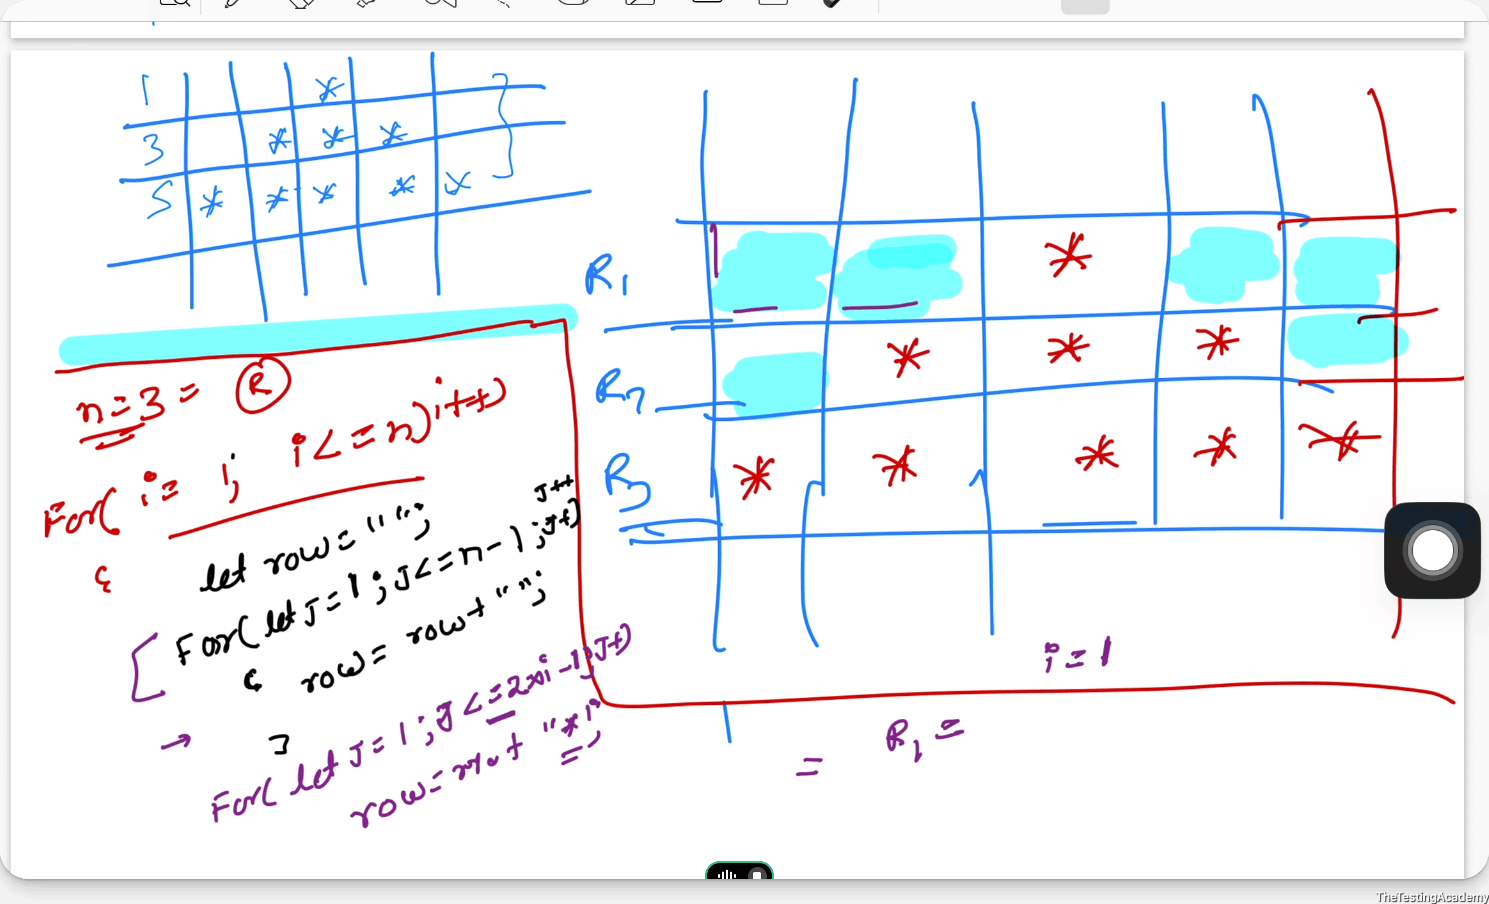 1 *
3 * * *
5 * * * * *
n=3= R
For( i= 1; i<=n) i++)
{
let row= "";
For( let J=1; J<=n-1; J++)
J++
{ row= row+" ";
}
For( let J=1; J<=2*i-1; J+)
row=row+ "*";
R1 *
R2 * * *
R3 * * * * *
i=1
= R1 =
TheTestingAcademy